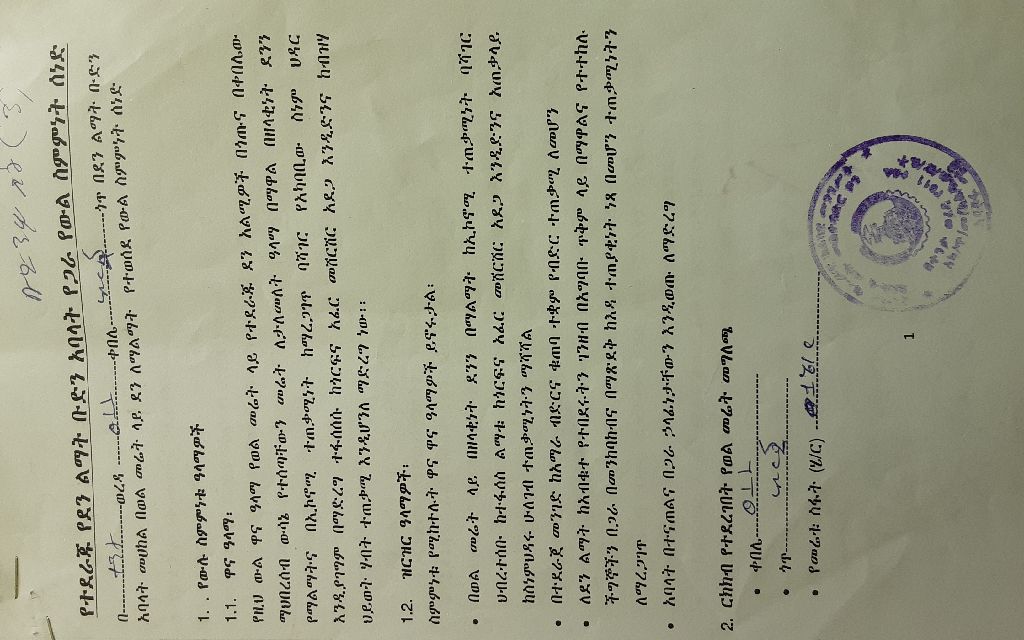 የተደራጁ የደን ልማት ቡድን አባላት የጋራ የውል ስምምነት ሰነድ
በ---------ወረዳ ---------ቀበሌ---------ጎጥ በደን ልማት ቡድን
አባላት መሀከል በወል መሬት ላይ ደን ለማልማት የተወሰደ የውል ስምምነት ሰነድ
1. የውሉ ስምምነቱ ዓላማዎች
1.1. ዋና ዓላማ፡
የዚህ ውል ዋና ዓላማ የወል መሬት ላይ የተደራጁ ደን አልሚዎች በጎጡና በቀበሌው
ማህበረሰብ ውሳኔ የተሰጣቸውን መሬት ለታለመለት ዓላማ በማዋል በዘላቂነት ደንን
የማልማትና በኢኮኖሚ ተጠቃሚነት ከማረጋገጥ ባሻገር የአካባቢው ስነም ህዳር
እንዲያገግም በማድረግ ተፋሰሱ ከጎርፍና አፈር መሸርሸር አደጋ እንዲድንና ከብዝሃ
ህይወት ሃብት ተጠቃሚ እንዲሆንለ ማድረግ ነው፡፡
1.2. ዝርዝር ዓላማዎች፡
ስምምነቱ የሚከተሉት ዋና ዋና ዓላማዎች ይኖሩታል፡
• በወል መሬት ላይ በዘላቂነት ደንን በማልማት ከኢኮኖሚ ተጠቃሚነት ባሻገር
ህብረተሰቡ ከተፋሰስ ልማቱ ከጎርፍና አፈር መሸርሸር አደጋ እንዲድንና አጠቃላይ
ከስነምህዳሩ ሁለገብ ተጠቃሚነትን ማሻሻል
• በተደራጀ መንገድ ከአማራ ብድርና ቁጠባ ተቋም የብድር ተጠቃሚ ለመሆን
• ለደን ልማት ከአብቁተ የተበደሩትን ገንዘብ በአግባቡ ጥቅም ላይ በማዋልና የተተከሉ
ችግኞችን በጋራ በመንከባከብና በማጽደቅ ከእዳ ተጠያቂነት ነጻ በመሆን ተጠቃሚነትን
ለማረጋገጥ
• አባላት በተናጠልና በጋራ ኃላፊነታቸውን እንዲወጡ ለማድረግ
2. ርክክብ የተደረገበት የወል መሬት መግለጫ
• ቀበሌ---------
• ጎጥ---------
• የመሬቱ ስፋት (ሄ/ር) ---------
1